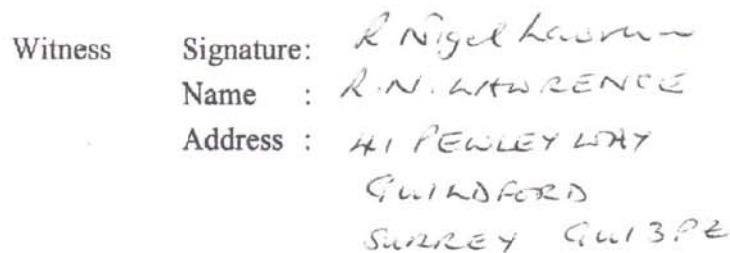 Witness Signature: R Nigel Lawrence
Name : R.N. LAWRENCE
Address : 41 PEWLEY WAY
GUILDFORD
SURREY GU1 3PZ